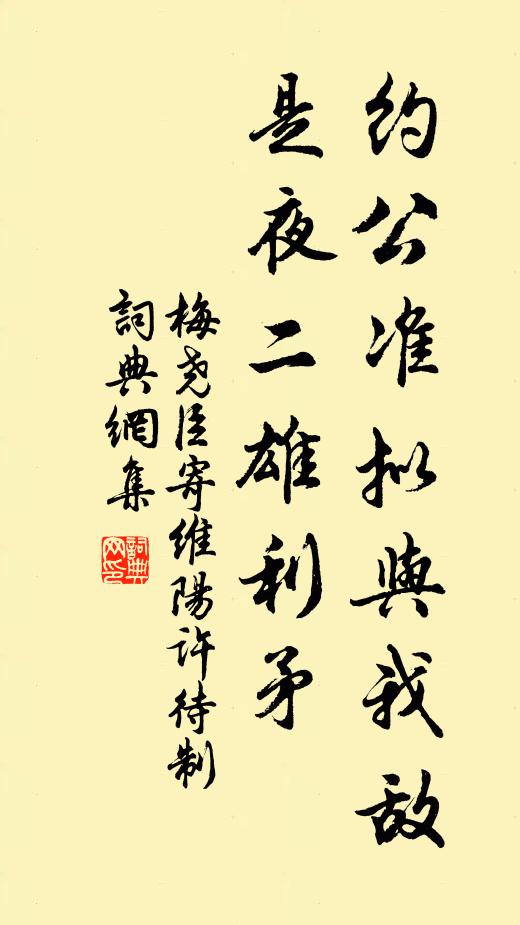 约公准拟與我敌
是夜二雄利矛
梅尧臣寄維陽許待制
詞典網集
詞典网印